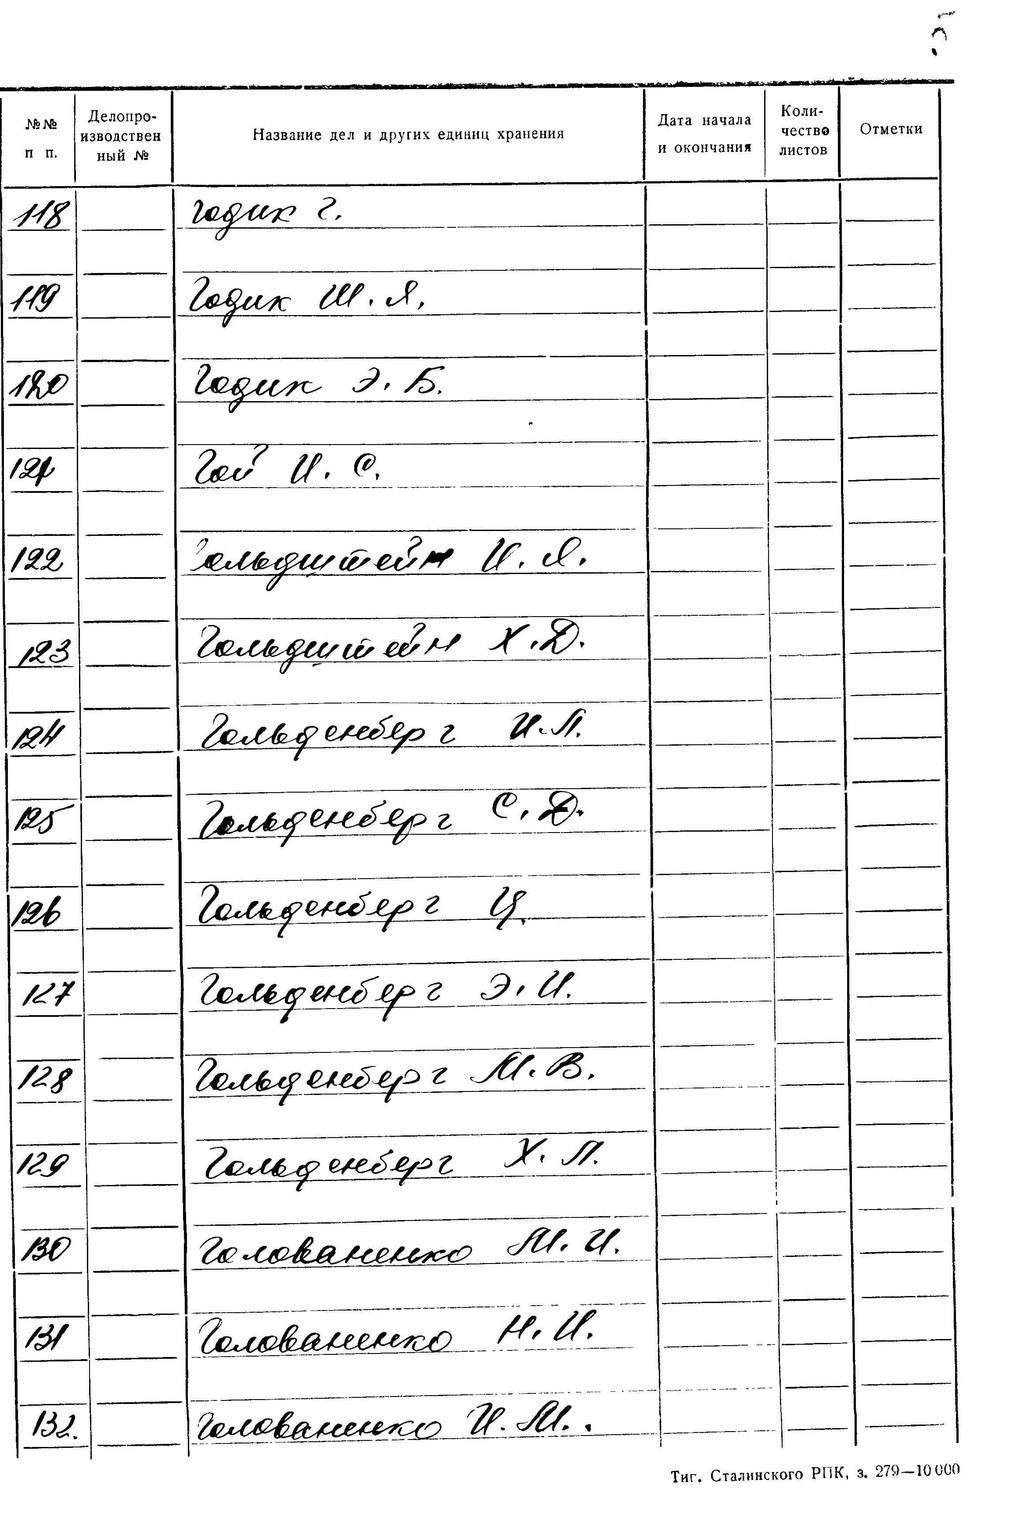 №№ п п. Делопроизводствен ный № Название дел и других единиц хранения Дата начала и окончания Количество листов Отметки
118 Годик Г.
119 Годик Ш. Я.
120 Годик Э. Б.
121 Гой И. С.
122 Гольдштейн И. Я.
123 Гольдштейн Х. Д.
124 Гольденберг И. Л.
125 Гольденберг С. Д.
126 Гольденберг Ц.
127 Гольденберг Э. И.
128 Гольденберг М. В.
129 Гольденберг Х. Л.
130 Голованенко М. И.
131 Голованенко Н. И.
132. Голованенко И. М.
Тиг. Сталинского РПК, з. 279—10 000